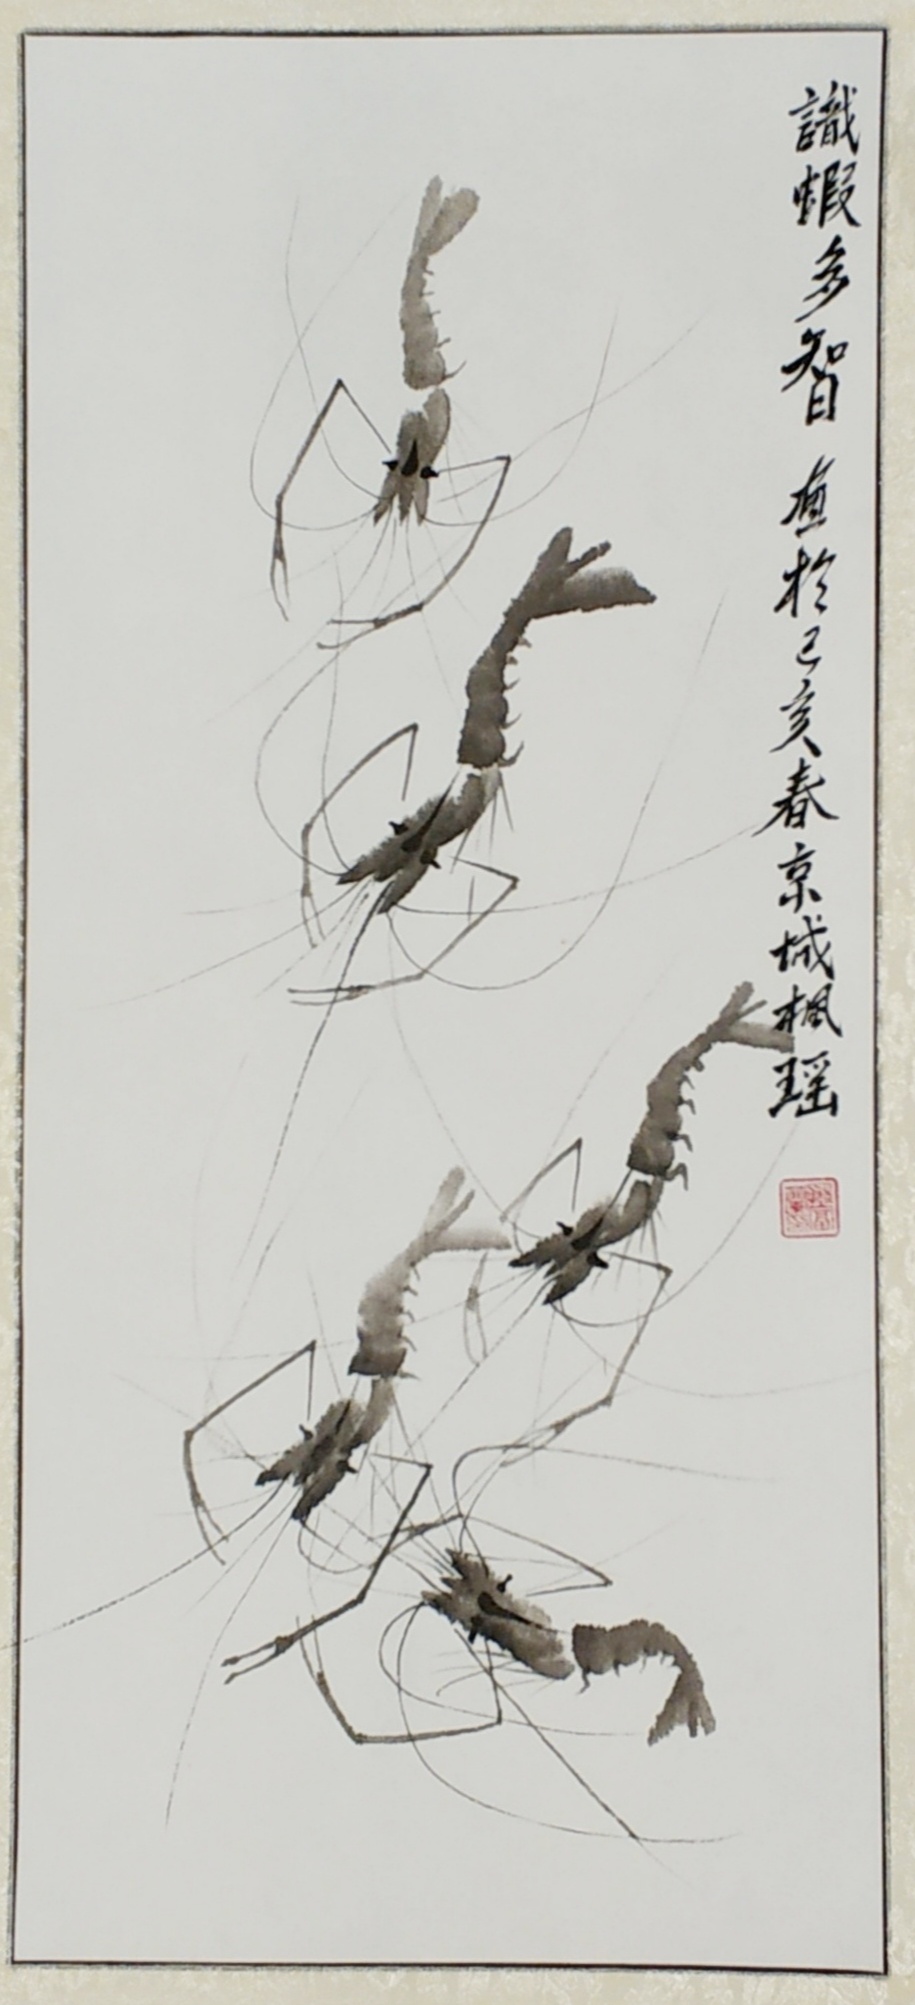 識蝦多智 直於己亥春京城楓瑶